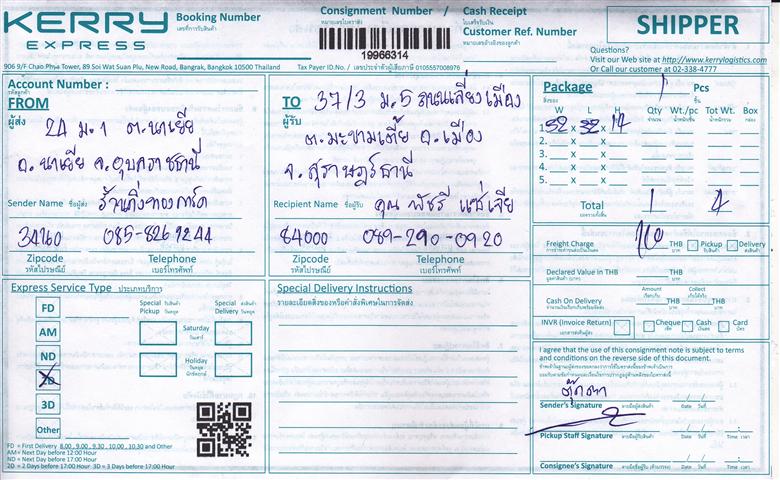 KERRY
EXPRESS
Booking Number
เลขที่การรับสินค้า
Consignment Number /
หมายเลขใบตราส่ง
19966314
Cash Receipt
ใบเสร็จรับเงิน
Customer Ref. Number
หมายเลขอ้างอิงของลูกค้า
SHIPPER
Questions?
Visit our Web site at http://www.kerrylogistics.com
Or Call our customer at 02-338-4777
906 9/F Chao Phya Tower, 89 Soi Wat Suan Plu, New Road, Bangrak, Bangkok 10500 Thailand
Tax Payer ID.No. / เลขประจำตัวผู้เสียภาษี 0105557008976
Account Number :
รหัสลูกค้า
FROM
ผู้ส่ง
24 ม.1 ต.นาเยีย
อ.นาเยีย จ.อุบลราชธานี
Sender Name ชื่อผู้ส่ง ร้านกิ่งทองการ์ด
34160 085-826 9244
Zipcode
รหัสไปรษณีย์
Telephone
เบอร์โทรศัพท์
TO
ผู้รับ
37/3 ม.5 ถนนเลี่ยงเมือง
ต.มะขามเตี้ย อ.เมือง
จ.สุราษฎร์ธานี
Recipient Name ชื่อผู้รับ คุณ พัชรี แซ่เจีย
84000 089-290-0920
Zipcode
รหัสไปรษณีย์
Telephone
เบอร์โทรศัพท์
Package 1 Pcs
สิ่งของ ชิ้น
W L H Qty Wt./pc Tot Wt. Box
จำนวน น้ำหนัก/ชิ้น น้ำหนักรวม กล่อง
1. 32 x 32 x 14
2. x x
3. x x
4. x x
5. x x
Total 1 4
Freight Charge 110 THB Pickup Delivery
Declared Value in THB THB
Amount Collect
Cash On Delivery THB
INVR (Invoice Return) Cheque Cash Card
เช็ค เงินสด บัตร
I agree that the use of this consignment note is subject to terms
and conditions on the reverse side of this document.
ตุ๊กตา
Sender's Signature ลายมือชื่อผู้ส่งสินค้า Date วันที่
Pickup Staff Signature ลายมือชื่อผู้รับสินค้า Date วันที่ Time เวลา
Consignee's Signature ลายมือชื่อผู้รับสินค้า (ตัวบรรจง) Date วันที่ Time เวลา
Express Service Type ประเภทบริการ
FD
AM
ND
2D
3D
Other
Special Pickup รับสินค้า วันหยุด
Special Delivery ส่งสินค้า วันหยุด
Saturday
วันเสาร์
Holiday
วันหยุด
นักขัตฤกษ์
FD = First Delivery 8.00 , 9.00 , 9.30 , 10.00 , 10.30 and Other
AM= Next Day before 12:00 Hour
ND = Next Day before 17:00 Hour
2D = 2 Days before 17:00 Hour 3D = 3 Days before 17:00 Hour
Special Delivery Instructions
รายละเอียดสิ่งของหรือคำสั่งพิเศษในการจัดส่ง